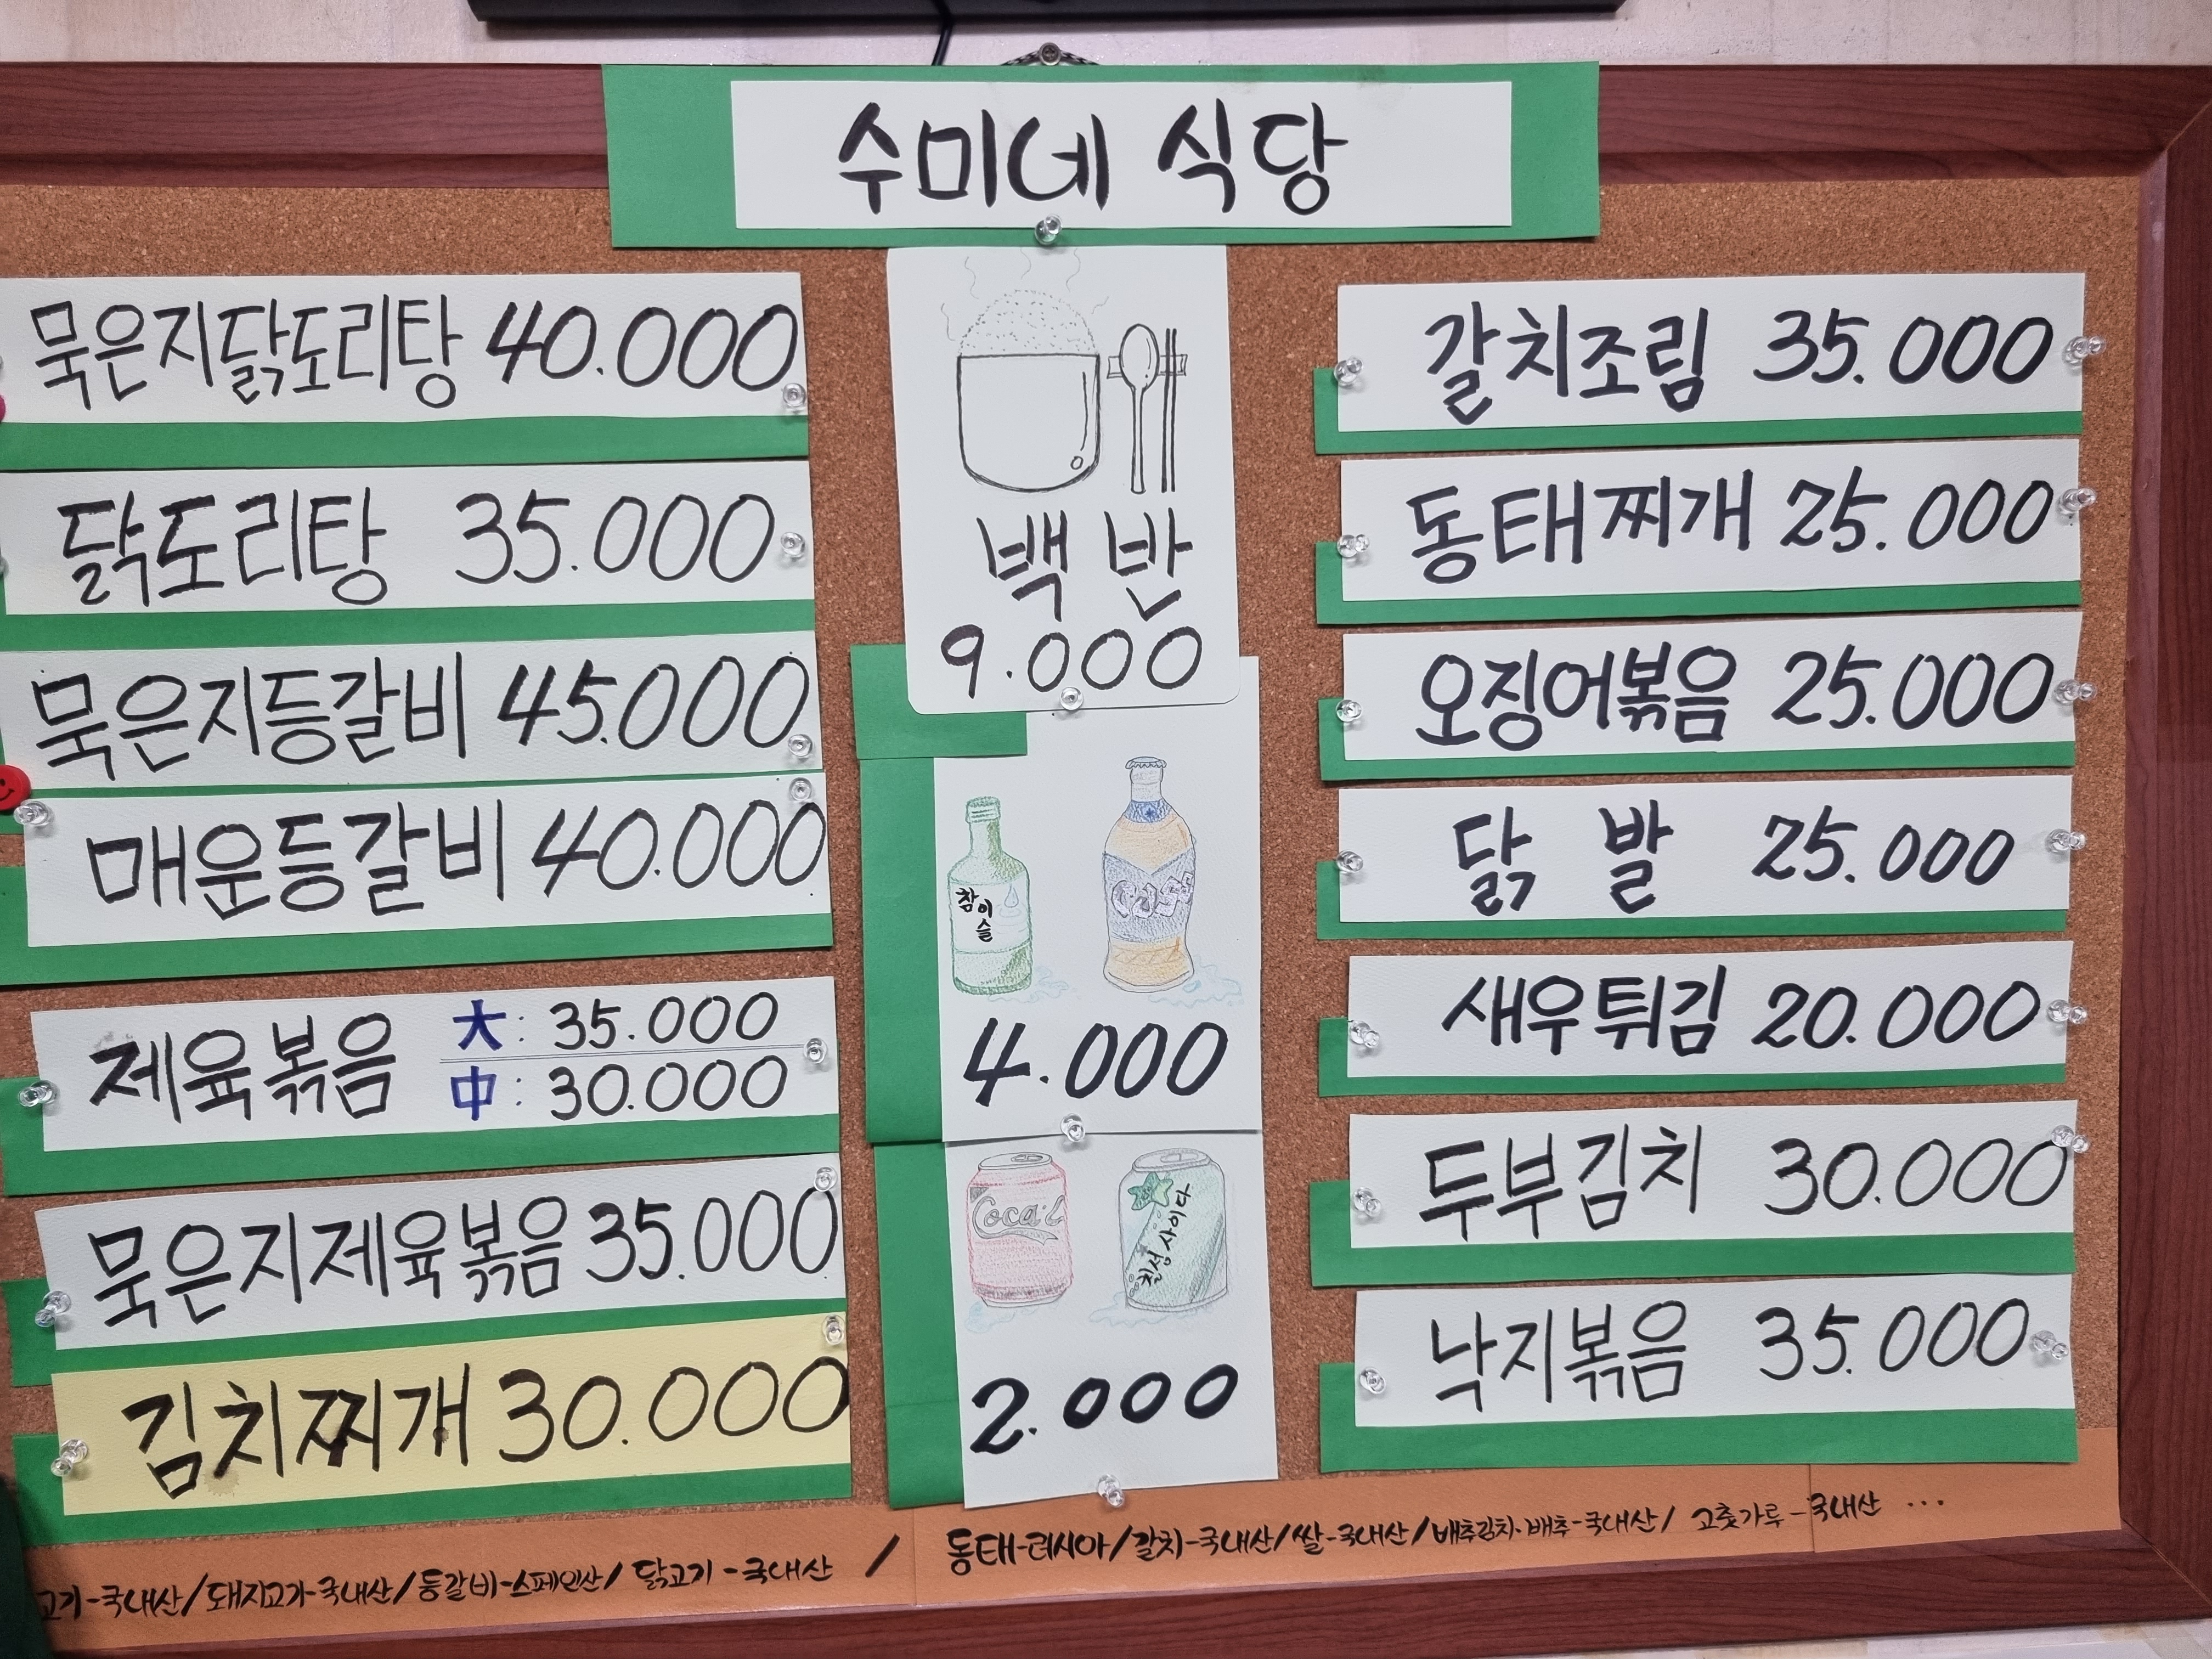 수미네 식당
묵은지닭도리탕 40.000
닭도리탕 35.000
묵은지등갈비 45.000
매운등갈비 40.000
제육볶음 大: 35.000
中: 30.000
묵은지제육볶음 35.000
김치찌개 30.000
백반
9.000
참이슬
Cass
4.000
Coca-C
칠성사이다
2.000
갈치조림 35.000
동태찌개 25.000
오징어볶음 25.000
닭발 25.000
새우튀김 20.000
두부김치 30.000
낙지볶음 35.000
고기-국내산/돼지고기-국내산/등갈비-스페인산/ 닭고기-국내산 /
동태-러시아/갈치-국내산/쌀-국내산/배추김치.배추-국내산/ 고춧가루-국내산 ...